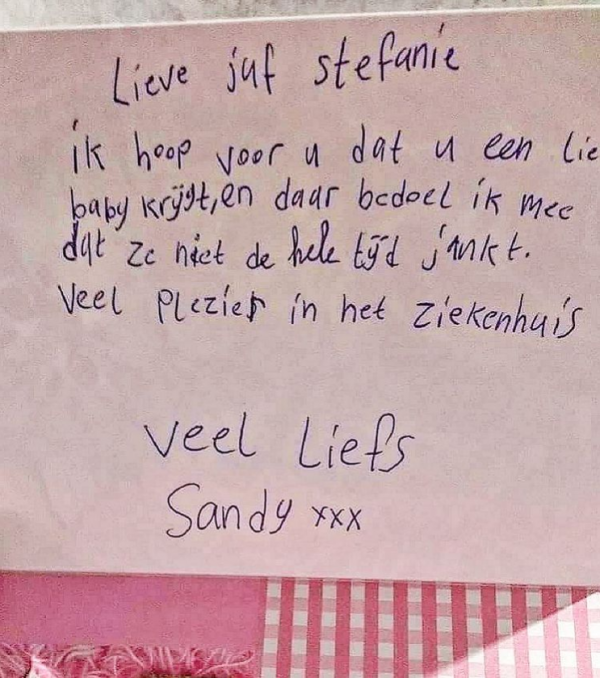 Lieve juf stefanie
ik hoop voor u dat u een lie
baby krijgt, en daar bedoel ik mee
dat ze niet de hele tijd jankt.
Veel Plezier in het ziekenhuis
veel Liefs
Sandy xxx